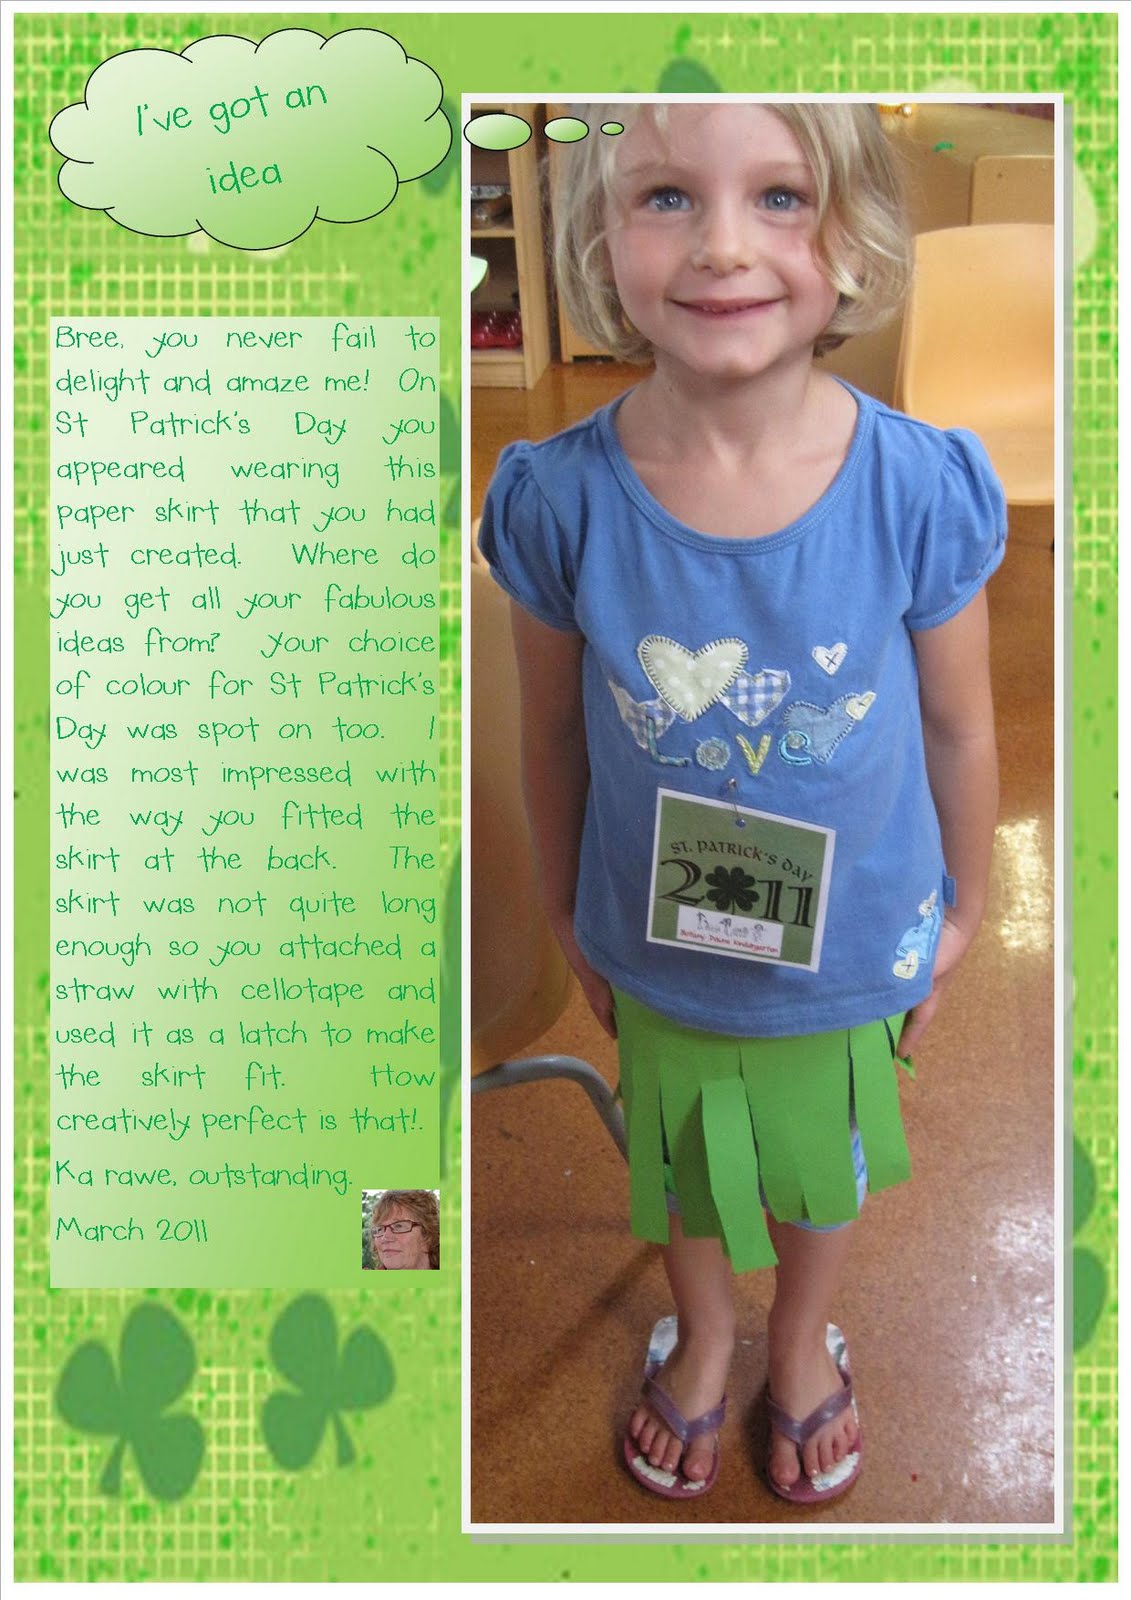 I've got an
idea
Bree, you never fail to
delight and amaze me! On
St Patrick's Day you
appeared wearing this
paper skirt that you had
just created. Where do
you get all your fabulous
ideas from? Your choice
of colour for St Patrick's
Day was spot on too. I
was most impressed with
the way you fitted the
skirt at the back. The
skirt was not quite long
enough so you attached a
straw with cellotape and
used it as a latch to make
the skirt fit. How
creatively perfect is that!.
Ka rawe, outstanding.
March 2011
Love
ST. PATRICK'S DAY
2011
Kindergarten